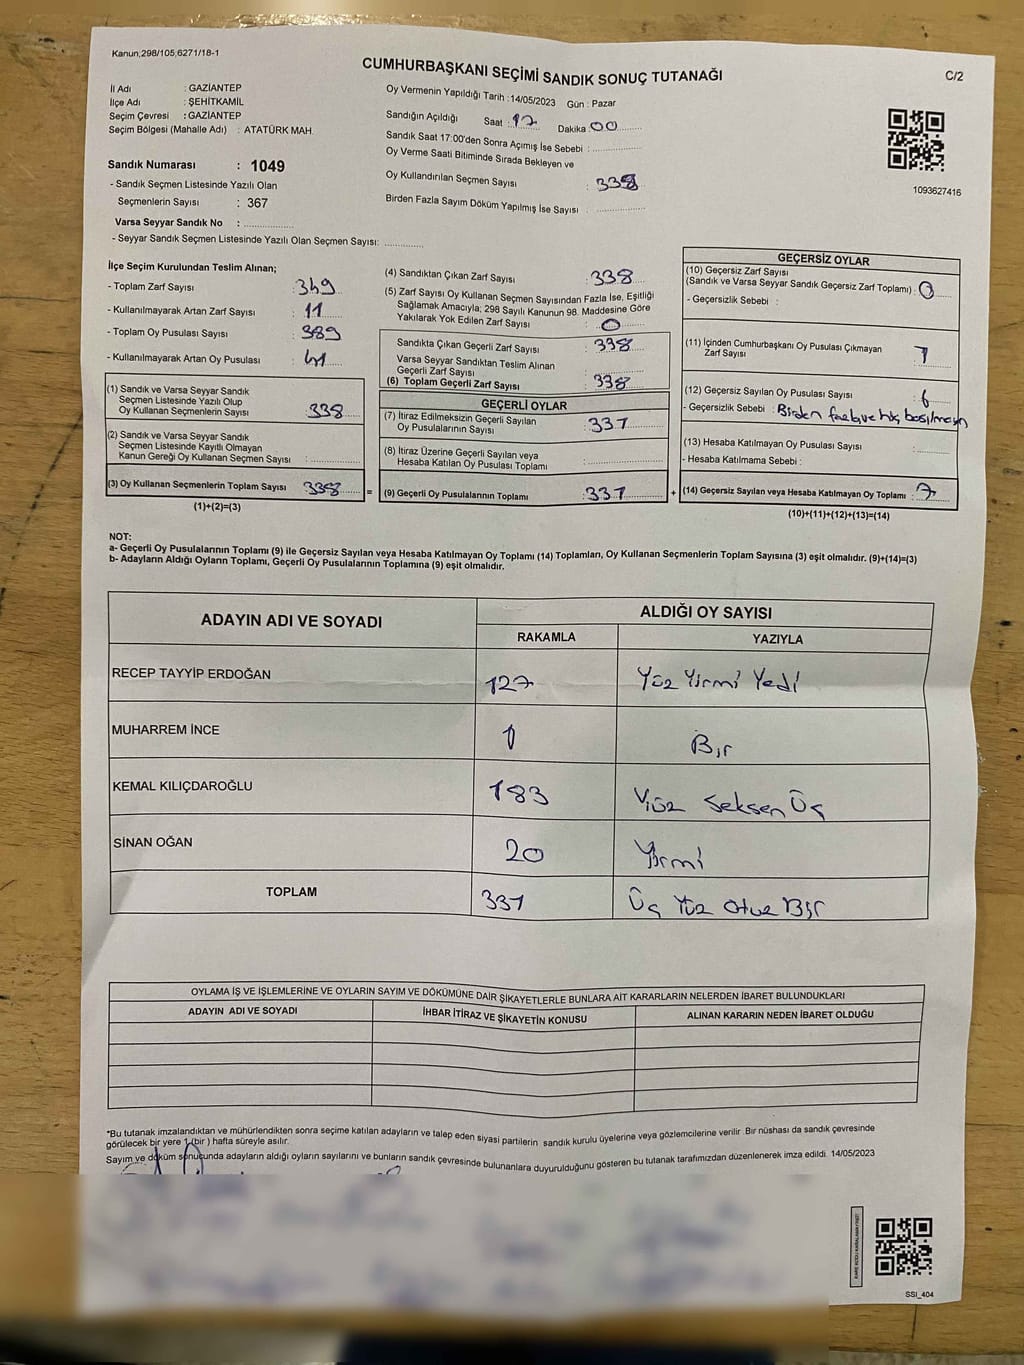 Kanun;298/105,6271/18-1
CUMHURBAŞKANI SEÇİMİ SANDIK SONUÇ TUTANAĞI
C/2
İl Adı : GAZİANTEP
İlçe Adı : ŞEHİTKAMİL
Seçim Çevresi : GAZİANTEP
Seçim Bölgesi (Mahalle Adı) : ATATÜRK MAH.
Sandık Numarası : 1049
- Sandık Seçmen Listesinde Yazılı Olan
Seçmenlerin Sayısı : 367
Varsa Seyyar Sandık No :
- Seyyar Sandık Seçmen Listesinde Yazılı Olan Seçmen Sayısı:
Oy Vermenin Yapıldığı Tarih :14/05/2023 Gün : Pazar
Sandığın Açıldığı Saat 17 Dakika 00
Sandık Saat 17:00'den Sonra Açımış İse Sebebi :
Oy Verme Saati Bitiminde Sırada Bekleyen ve
Oy Kullandırılan Seçmen Sayısı : 338
Birden Fazla Sayım Döküm Yapılmış İse Sayısı :
1093627416
İlçe Seçim Kurulundan Teslim Alınan;
- Toplam Zarf Sayısı : 349
- Kullanılmayarak Artan Zarf Sayısı : 11
- Toplam Oy Pusulası Sayısı : 389
- Kullanılmayarak Artan Oy Pusulası :
(1) Sandık ve Varsa Seyyar Sandık
Seçmen Listesinde Yazılı Olup
Oy Kullanan Seçmenlerin Sayısı : 338
(2) Sandık ve Varsa Seyyar Sandık
Seçmen Listesinde Kayıtlı Olmayan
Kanun Gereği Oy Kullanan Seçmen Sayısı :
(3) Oy Kullanan Seçmenlerin Toplam Sayısı : 338
(1)+(2)=(3)
=
(4) Sandıktan Çıkan Zarf Sayısı : 338
(5) Zarf Sayısı Oy Kullanan Seçmen Sayısından Fazla İse, Eşitliği
Sağlamak Amacıyla; 298 Sayılı Kanunun 98. Maddesine Göre
Yakılarak Yok Edilen Zarf Sayısı : 0
Sandıkta Çıkan Geçerli Zarf Sayısı : 338
Varsa Seyyar Sandıktan Teslim Alınan
Geçerli Zarf Sayısı :
(6) Toplam Geçerli Zarf Sayısı : 338
GEÇERLİ OYLAR
(7) İtiraz Edilmeksizin Geçerli Sayılan
Oy Pusulalarının Sayısı : 331
(8) İtiraz Üzerine Geçerli Sayılan veya
Hesaba Katılan Oy Pusulası Toplamı :
(9) Geçerli Oy Pusulalarının Toplamı : 331
+
GEÇERSİZ OYLAR
(10) Geçersiz Zarf Sayısı
(Sandık ve Varsa Seyyar Sandık Geçersiz Zarf Toplamı) : 0
- Geçersizlik Sebebi :
(11) İçinden Cumhurbaşkanı Oy Pusulası Çıkmayan
Zarf Sayısı : 1
(12) Geçersiz Sayılan Oy Pusulası Sayısı : 6
- Geçersizlik Sebebi : Birden fazla ve hiç basılmayan
(13) Hesaba Katılmayan Oy Pusulası Sayısı :
- Hesaba Katılmama Sebebi :
(14) Geçersiz Sayılan veya Hesaba Katılmayan Oy Toplamı : 7
(10)+(11)+(12)+(13)=(14)
NOT:
a- Geçerli Oy Pusulalarının Toplamı (9) ile Geçersiz Sayılan veya Hesaba Katılmayan Oy Toplamı (14) Toplamları, Oy Kullanan Seçmenlerin Toplam Sayısına (3) eşit olmalıdır. (9)+(14)=(3)
b- Adayların Aldığı Oyların Toplamı, Geçerli Oy Pusulalarının Toplamına (9) eşit olmalıdır.
ADAYIN ADI VE SOYADI ALDIĞI OY SAYISI
RAKAMLA YAZIYLA
RECEP TAYYİP ERDOĞAN 127 Yüz Yirmi Yedi
MUHARREM İNCE 1 Bir
KEMAL KILIÇDAROĞLU 183 Yüz Seksen Üç
SİNAN OĞAN 20 Yirmi
TOPLAM 331 Üç Yüz Otuz Bir
OYLAMA İŞ VE İŞLEMLERİNE VE OYLARIN SAYIM VE DÖKÜMÜNE DAİR ŞİKAYETLERLE BUNLARA AİT KARARLARIN NELERDEN İBARET BULUNDUKLARI
ADAYIN ADI VE SOYADI İHBAR İTİRAZ VE ŞİKAYETİN KONUSU ALINAN KARARIN NEDEN İBARET OLDUĞU
*Bu tutanak imzalandıktan ve mühürlendikten sonra seçime katılan adayların ve talep eden siyasi partilerin sandık kurulu üyelerine veya gözlemcilerine verilir. Bir nüshası da sandık çevresinde
görülecek bir yere 1 (bir) hafta süreyle asılır.
Sayım ve döküm sonucunda adayların aldığı oyların sayılarını ve bunların sandık çevresinde bulunanlara duyurulduğunu gösteren bu tutanak tarafımızdan düzenlenerek imza edildi. 14/05/2023
SSI_404